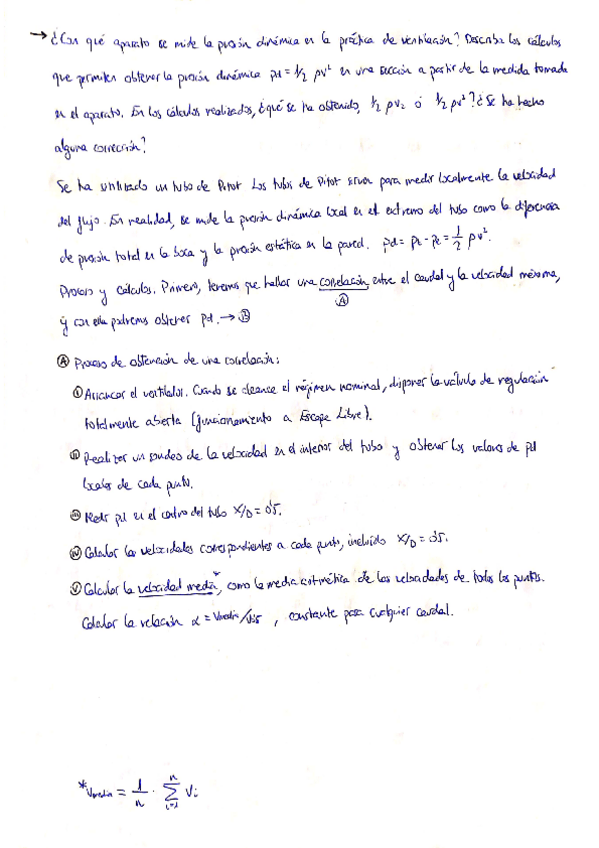 → ¿Con qué aparato se mide la presión dinámica en la práctica de ventilación? Describa los cálculos
que permiten obtener la presión dinámica pd = 1/2 ρv² en una sección a partir de la medida tomada
en el aparato. En los cálculos realizados, ¿qué se ha obtenido, 1/2 ρv₂ ó 1/2 ρv²? ¿Se ha hecho
alguna corrección?
Se ha utilizado un tubo de Pitot. Los tubos de Pitot sirven para medir localmente la velocidad
del flujo. En realidad, se mide la presión dinámica local en el extremo del tubo como la diferencia
de presión total en la boca y la presión estática en la pared. pd = pt - pe = 1/2 ρv².
Proceso y cálculos. Primero, tenemos que hallar una correlación entre el caudal y la velocidad máxima,
Ⓐ
y con ella podremos obtener pd. → Ⓑ
Ⓐ Proceso de obtención de una correlación:
Ⓘ Arrancar el ventilador. Cuando se alcance el régimen nominal, disponer la válvula de regulación
totalmente abierta (funcionamiento a Escape Libre).
ⓘⓘ Realizar un sondeo de la velocidad en el interior del tubo y obtener los valores de pd
locales de cada punto.
ⓘⓘⓘ Medir pd en el centro del tubo X/D = 0'5.
Ⓘⓥ Calcular las velocidades correspondientes a cada punto, incluido X/D = 0'5.
Ⓥ Calcular la velocidad media*, como la media aritmética de las velocidades de todos los puntos.
Calcular la relación α = Vmedia/V0'5, constante para cualquier caudal.
*Vmedia = 1/n · Σ Vi
n
i=1